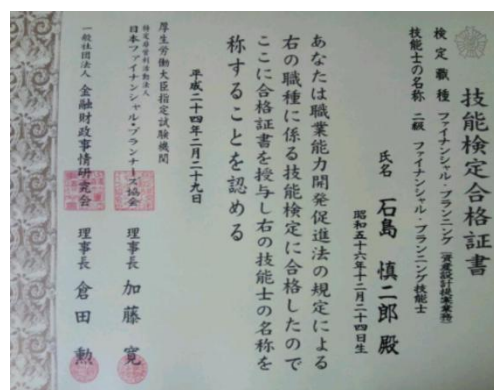 技能検定合格証書
検定職種 ファイナンシャル・プランニング(資産設計提案業務)
技能士の名称 二級 ファイナンシャル・プランニング技能士
氏名 石島 慎二郎 殿
昭和五十六年十二月二十四日生
あなたは職業能力開発促進法の規定による
右の職種に係る技能検定に合格したので
ここに合格証書を授与し右の技能士の名称を
称することを認める
平成二十四年二月二十九日
厚生労働大臣指定試験機関
特定非営利活動法人
日本ファイナンシャル・プランナーズ協会 理事長 加藤 寛
一般社団法人 金融財政事情研究会 理事長 倉田 勲